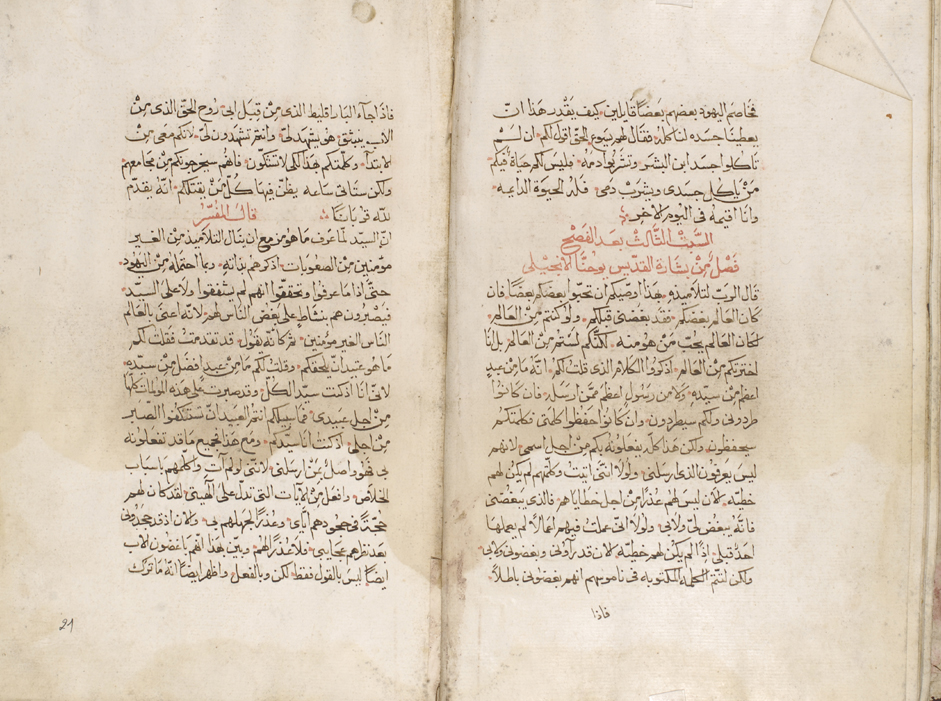 فخاصم اليهود بعضهم بعضًا قايلين كيف يقدر هذا انّ
يعطينا جسده لناكله فقال لهم يسوع الحق اقول لكم ان لـمْ
تاكلوا جسد ابن البشر وتشربوا دمه فليس لكم حياة فيكم
مَنْ ياكل جسدى ويشرب دمى فلهُ الحيوة الدايمه
وانا اقيمه فى اليوم الاخر
السبت الثالث بعد الفصح
فصلٌ مِنْ بشارة القديس يوحنّا الانجيلى
قال الربّ لتلاميذه هذا اوصيكم ان تحبوا بعضكم بعضًا فان
كان العالم يبغضكم فقد بغضنى قبلكم ولو كنتم مِنَ العالم
لكان العالم يحبّ مَنْ هو منه لكنّكم لستم مِنَ العالم بل انا
اخترتكم مِنَ العالم اذكروا الكلام الذى قلت لكم انّه ما مِن عبدٍ
اعظم مِنْ سيّدهِ ولا مِن رسولٍ اعظم ممّن ارسله فان كانوا
طردونى ولكم سيطردون وان كانوا حفظوا كلمتى فكلمتكم
سيحفظون ولكن هذا كلّه يفعلونه بكم مِنْ اجل اسمى لانهم
ليس يعرفون الذى رسلنى ولولا انّنى اتيت وكلّمتهم لم يكن لهم
خطيّه لاٰن ليس لهم عذرٌ مِنْ اجل خطاياهم فالذى يبغضنى
فانّه يبغض لى ولابى ولولا انّى عملت فيهم اعمالاً لم يعملها
احدٌ قبلى اذًا لم يكن لهم خطيّه لان قد رآونى وبغضونى ولابى
ولكن لتتمّ الكلمه المكتوبه فى ناموسهم انهم بغضونى باطلاً
فاذا
فاذا جآء البارقليط الذى مِنْ قبل ابى روح الحقّ الذى مِنْ
الاب ينبثق هو يشهد لى وانتم تشهدون لى لانكم معى مِنَ
الابتدآ وكلّمتكم بهذا لكى لا تشكّون فانهم سيخرجوكم مِنْ مجامعهم
ولكن ستاتى ساعه يظنّ فيها كُلّ مَنْ يقتلكم انّه يقدّم
لله قربانًا قال المفسّر
انّ السيّد لمّا عرف ما هو مزمع ان ينال التلاميذ مِنَ الغير
مؤمنين مِنَ الصعوبات اذكرهم بذاته وبما احتمله مِنَ اليهود
حتّى اذا ما عرفوا وتحققوا انهم لم يشفقوا ولا على السيّد
فيصبرون هم بنشاطٍ على بغض الناس لهم لانّه اعنى بالعالم
الناس الغير مؤمنين ثمّ كانّه يقول قد تقدمت فقلت لكم
ما هو عتيد ان يلحقكم وقلت لكم ما مِنْ عبدٍ افضل مِنْ سيّده
لانّى انا اذ كنت سيّد الكلّ وقد صبرت على هذه الالومات كلّها
مِنْ اجل عبيدى فما بالكم انتم العبيد انْ تستنكفوا الصبر
مِنْ اجلى اذ كنت انا سيّدكم ومع هذا فجميع ما قد تفعلونه
بى فهو واصلٌ عمّن ارسلنى لانّنى لو لم آت واكلمهم باسباب
الخلاص وافعل مِنْ الآيات التى تدلّ على الهيتى لقد كان لهم
حجّةً فى جحودهم ايّاى وعذرًا لجهلهم بى ولاان اذ قد جحدونى
بعد نظرهم عجايبى فلا عذر لهم وبيّن لهذا انهم باغضون للاب
ايضًا ليس بالقول فقط لكن وبالفعل واظهر ايضًا انّه ما ترك
21